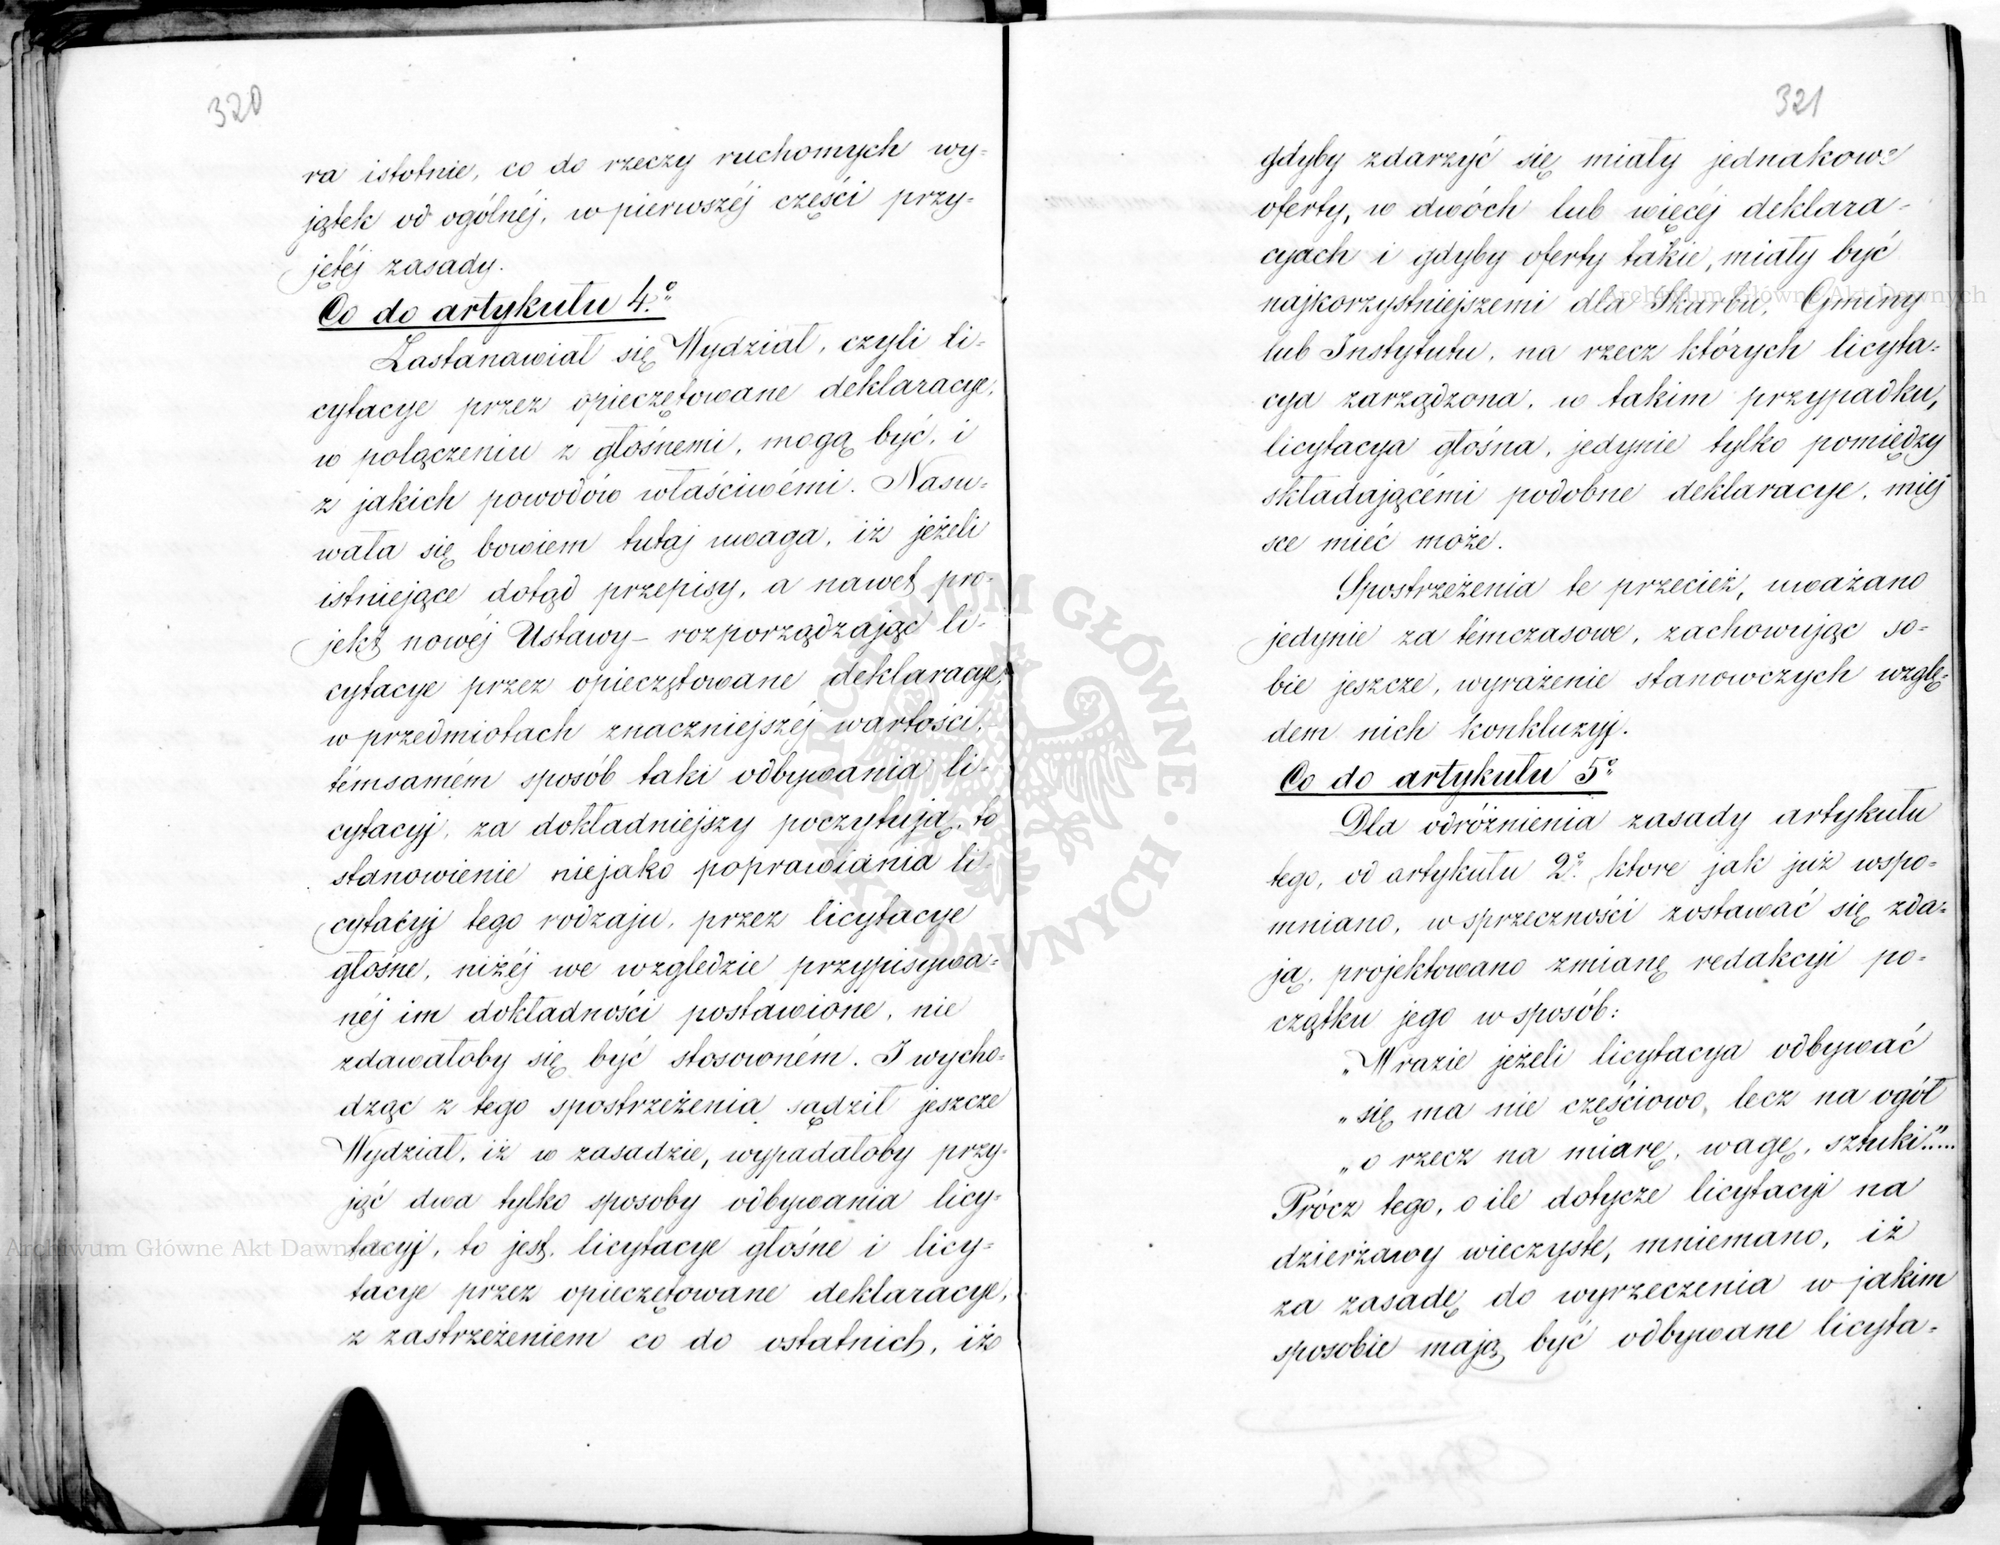 320
ra istotnie, co do rzeczy ruchomych wy-
jątek od ogólnéj, w pierwszéj części przy-
jętéj zasady.
Co do artykułu 4.º
Zastanawiał się Wydział, czyli li-
cytacye przez opieczętowane deklaracye,
w połączeniu z głośnemi, mogą być, i
z jakich powodów właściwémi. Nasu-
wała się bowiem tutaj uwaga, iż jeżeli
istniejące dotąd przepisy, a nawet pro-
jekt nowéj Ustawy – rozporządzając li-
cytacye przez opieczętowane deklaracye,
w przedmiotach znaczniejszéj wartości,
témsamém sposób taki odbywania li-
cytacyj, za dokładniejszy poczytują, to
stanowienie niejako poprawiania li-
cytacyj tego rodzaju, przez licytacye
głośne, niżéj we względzie przypisywa-
néj im dokładności postawione, nie
zdawałoby się być stosowném. I wycho-
dząc z tego spostrzeżenia sądził jeszcze
Wydział, iż w zasadzie, wypadałoby przy-
jąć dwa tylko sposoby odbywania licy-
tacyj, to jest, licytacye głośne i licy-
tacye przez opieczętowane deklaracye,
z zastrzeżeniem co do ostatnich, iż
321
gdyby zdarzyć się miały jednakowe
oferty, w dwóch lub więcéj deklara-
cyach i gdyby oferty takie, miały być
najkorzystniejszemi dla Skarbu, Gminy
lub Instytutu, na rzecz których licyta-
cya zarządzona, w takim przypadku,
licytacya głośna, jedynie tylko pomiędzy
składającémi podobne deklaracye, miej
sce mieć może.
Spostrzeżenia te przecież, uważano
jedynie za témczasowe, zachowując so-
bie jeszcze, wyrażenie stanowczych wzglę-
dem nich konkluzyj.
Co do artykułu 5º
Dla odróżnienia zasady artykułu
tego, od artykułu 2º. ktore jak już wspo-
mniano, w sprzeczności zostawać się zda-
ją, projektowano zmianę redakcyi po-
czątku jego w sposób:
„W razie jeżeli licytacya odbywać
„się ma nie częściowo, lecz na ogół
„o rzecz na miarę, wagę, sztuki"....
Prócz tego, o ile dotycze licytacyi na
dzierżawy wieczyste, mniemano, iż
za zasadę do wyrzeczenia w jakim
sposobie mają być odbywane licyta-
Archiwum Główne Akt Dawnych
Archiwum Główne Akt Dawnych
ARCHIWUM GŁÓWNE AKT DAWNYCH